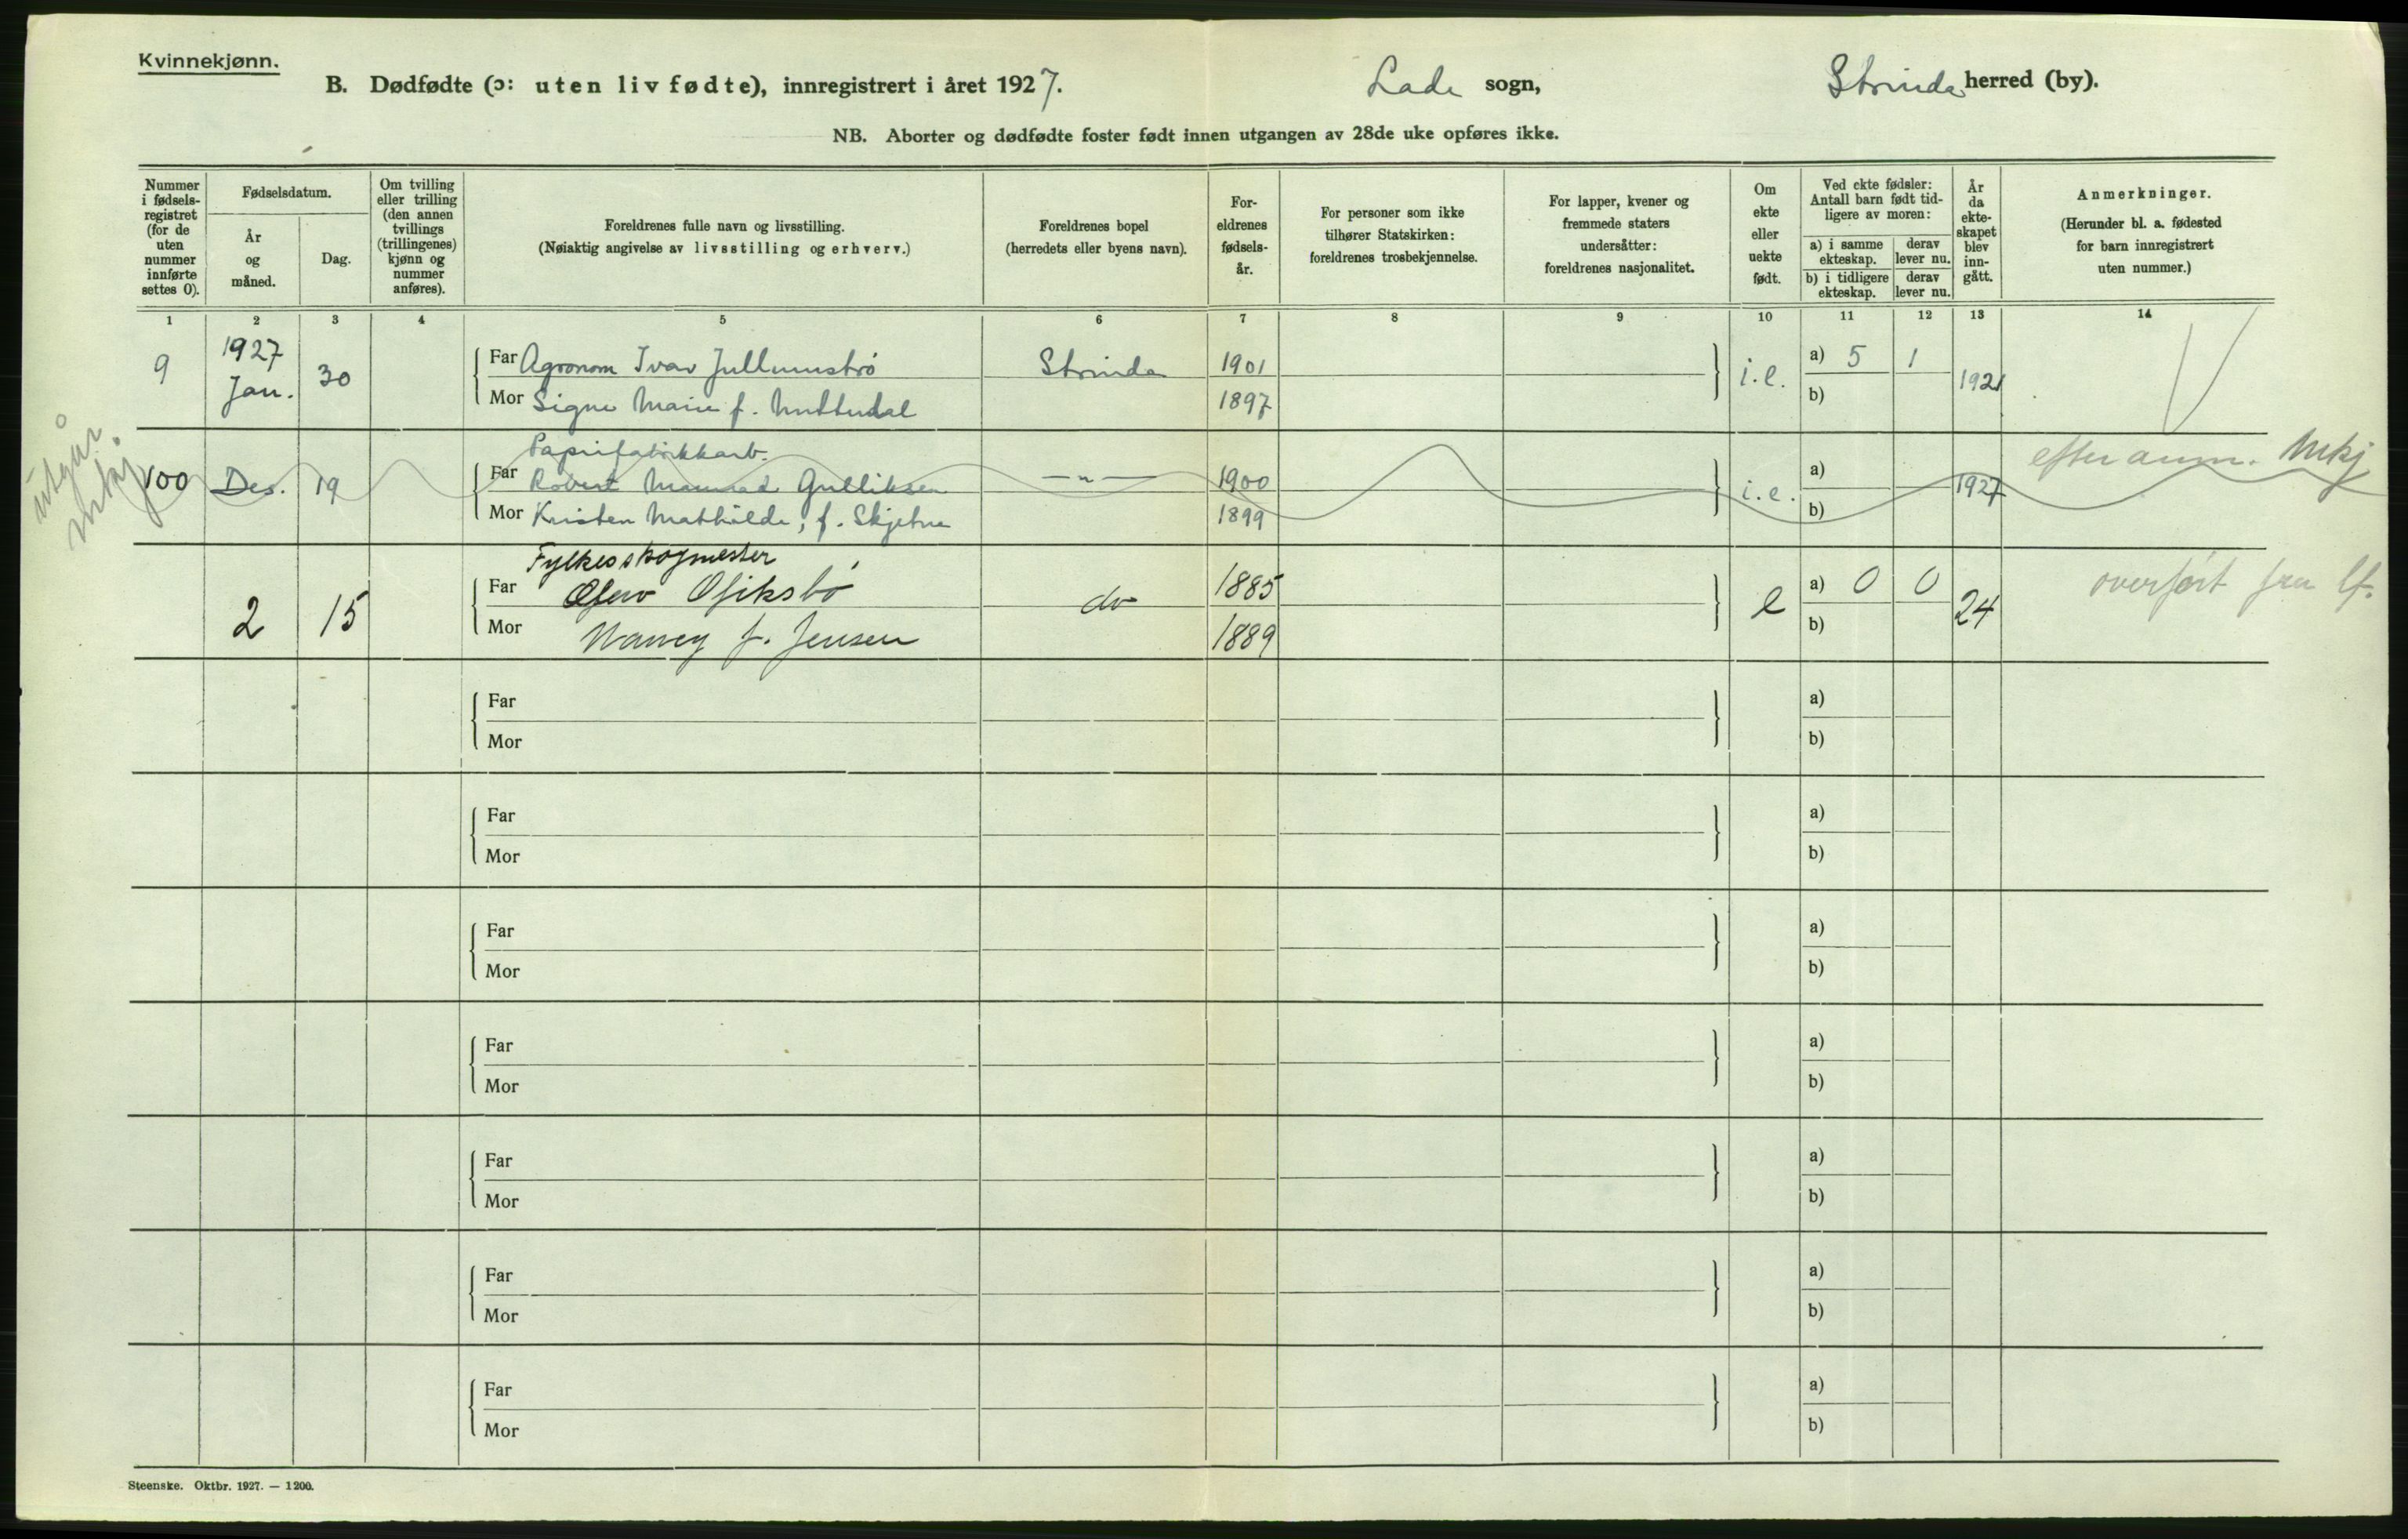 Kvinnekjønn.
B. Dødfødte (ɔ: uten liv fødte), innregistrert i året 1927. Lade sogn, Strinda herred (by).
NB. Aborter og dødfødte foster født innen utgangen av 28de uke opføres ikke.
Nummer i fødselsregistret (for de uten nummer innførte settes 0).
Fødselsdatum.
År og måned.
Dag.
Om tvilling eller trilling (den annen tvillings (trillingenes) kjønn og nummer anføres).
Foreldrenes fulle navn og livsstilling.
(Nøiaktig angivelse av livsstilling og erhverv.)
Foreldrenes bopel
(herredets eller byens navn).
Foreldrenes fødselsår.
For personer som ikke tilhører Statskirken: foreldrenes trosbekjennelse.
For lapper, kvener og fremmede staters undersåtter: foreldrenes nasjonalitet.
Om ekte eller uekte født.
Ved ekte fødsler: Antall barn født tidligere av moren:
a) i samme ekteskap. derav lever nu.
b) i tidligere ekteskap. derav lever nu.
År da ekteskapet blev inngått.
Anmerkninger.
(Herunder bl. a. fødested for barn innregistrert uten nummer.)
1 2 3 4 5 6 7 8 9 10 11 12 13 14
9 1927 Jan. 30 Far Agronom Ivar Jullumstrø Strinda 1901 i.e. a) 5 1 1921
Mor Signe Marie f. 1897 b)
utgår Mkj.
Papirfabrikkarb.
100 Des. 19 Far Robert Gulliksen —"— 1900 i.e. a) 1927 efter anm. Mkj
Mor Kristen Mathilde, f. Skjetne 1899 b)
Fylkesskogmester
2 15 Far do 1885 e a) 0 0 24 overført fra lf.
Mor Nancy f. Jensen 1889 b)
Far a)
Mor b)
Far a)
Mor b)
Far a)
Mor b)
Far a)
Mor b)
Far a)
Mor b)
Far a)
Mor b)
Far a)
Mor b)
Steenske. Oktbr. 1927. — 1200.